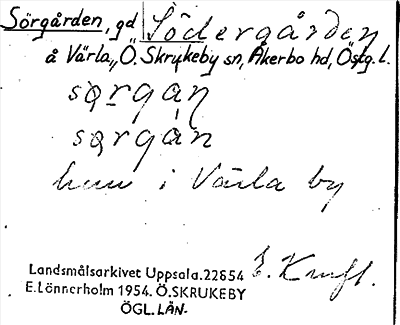 Sörgården, gd Södergården
å Värla, Ö. Skrukeby sn, Åkerbo hd, Östg. l.
sǫrgan
sǫrgàn
hem i Värla by
Landsmålsarkivet Uppsala. 22654
E. Lönnerholm 1954. Ö. SKRUKEBY
ÖGL. LÄN.